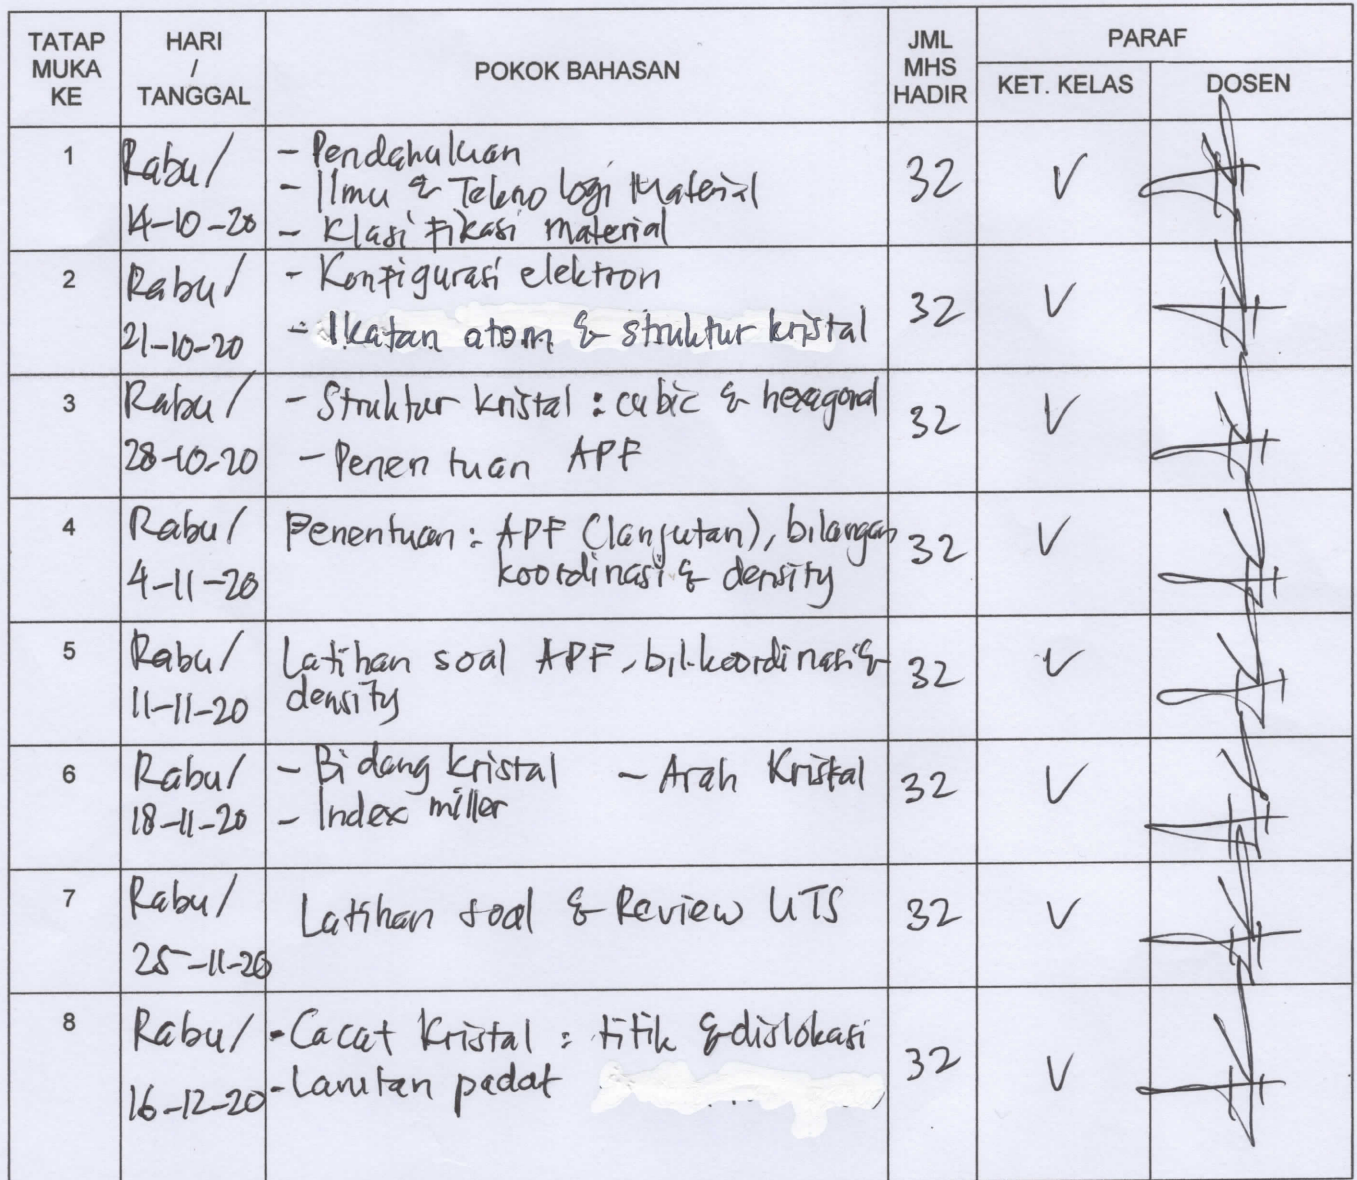 TATAP MUKA KE
HARI / TANGGAL
POKOK BAHASAN
JML MHS HADIR
PARAF
KET. KELAS
DOSEN
1
Rabu/
14-10-20
- Pendahuluan
- Ilmu & Teknologi Material
- Klasifikasi material
32
V
2
Rabu/
21-10-20
- Konfigurasi elektron
- Ikatan atom & struktur kristal
32
V
3
Rabu/
28-10-20
- Struktur kristal : cubic & hexagonal
- Penentuan APF
32
V
4
Rabu/
4-11-20
Penentuan : APF (lanjutan), bilangan
koordinasi & density
32
V
5
Rabu/
11-11-20
Latihan soal APF, bil.koordinasi &
density
32
V
6
Rabu/
18-11-20
- Bidang kristal - Arah Kristal
- Index miller
32
V
7
Rabu/
25-11-20
Latihan soal & Review UTS
32
V
8
Rabu/
16-12-20
- Cacat Kristal : titik & dislokasi
- Larutan padat
32
V